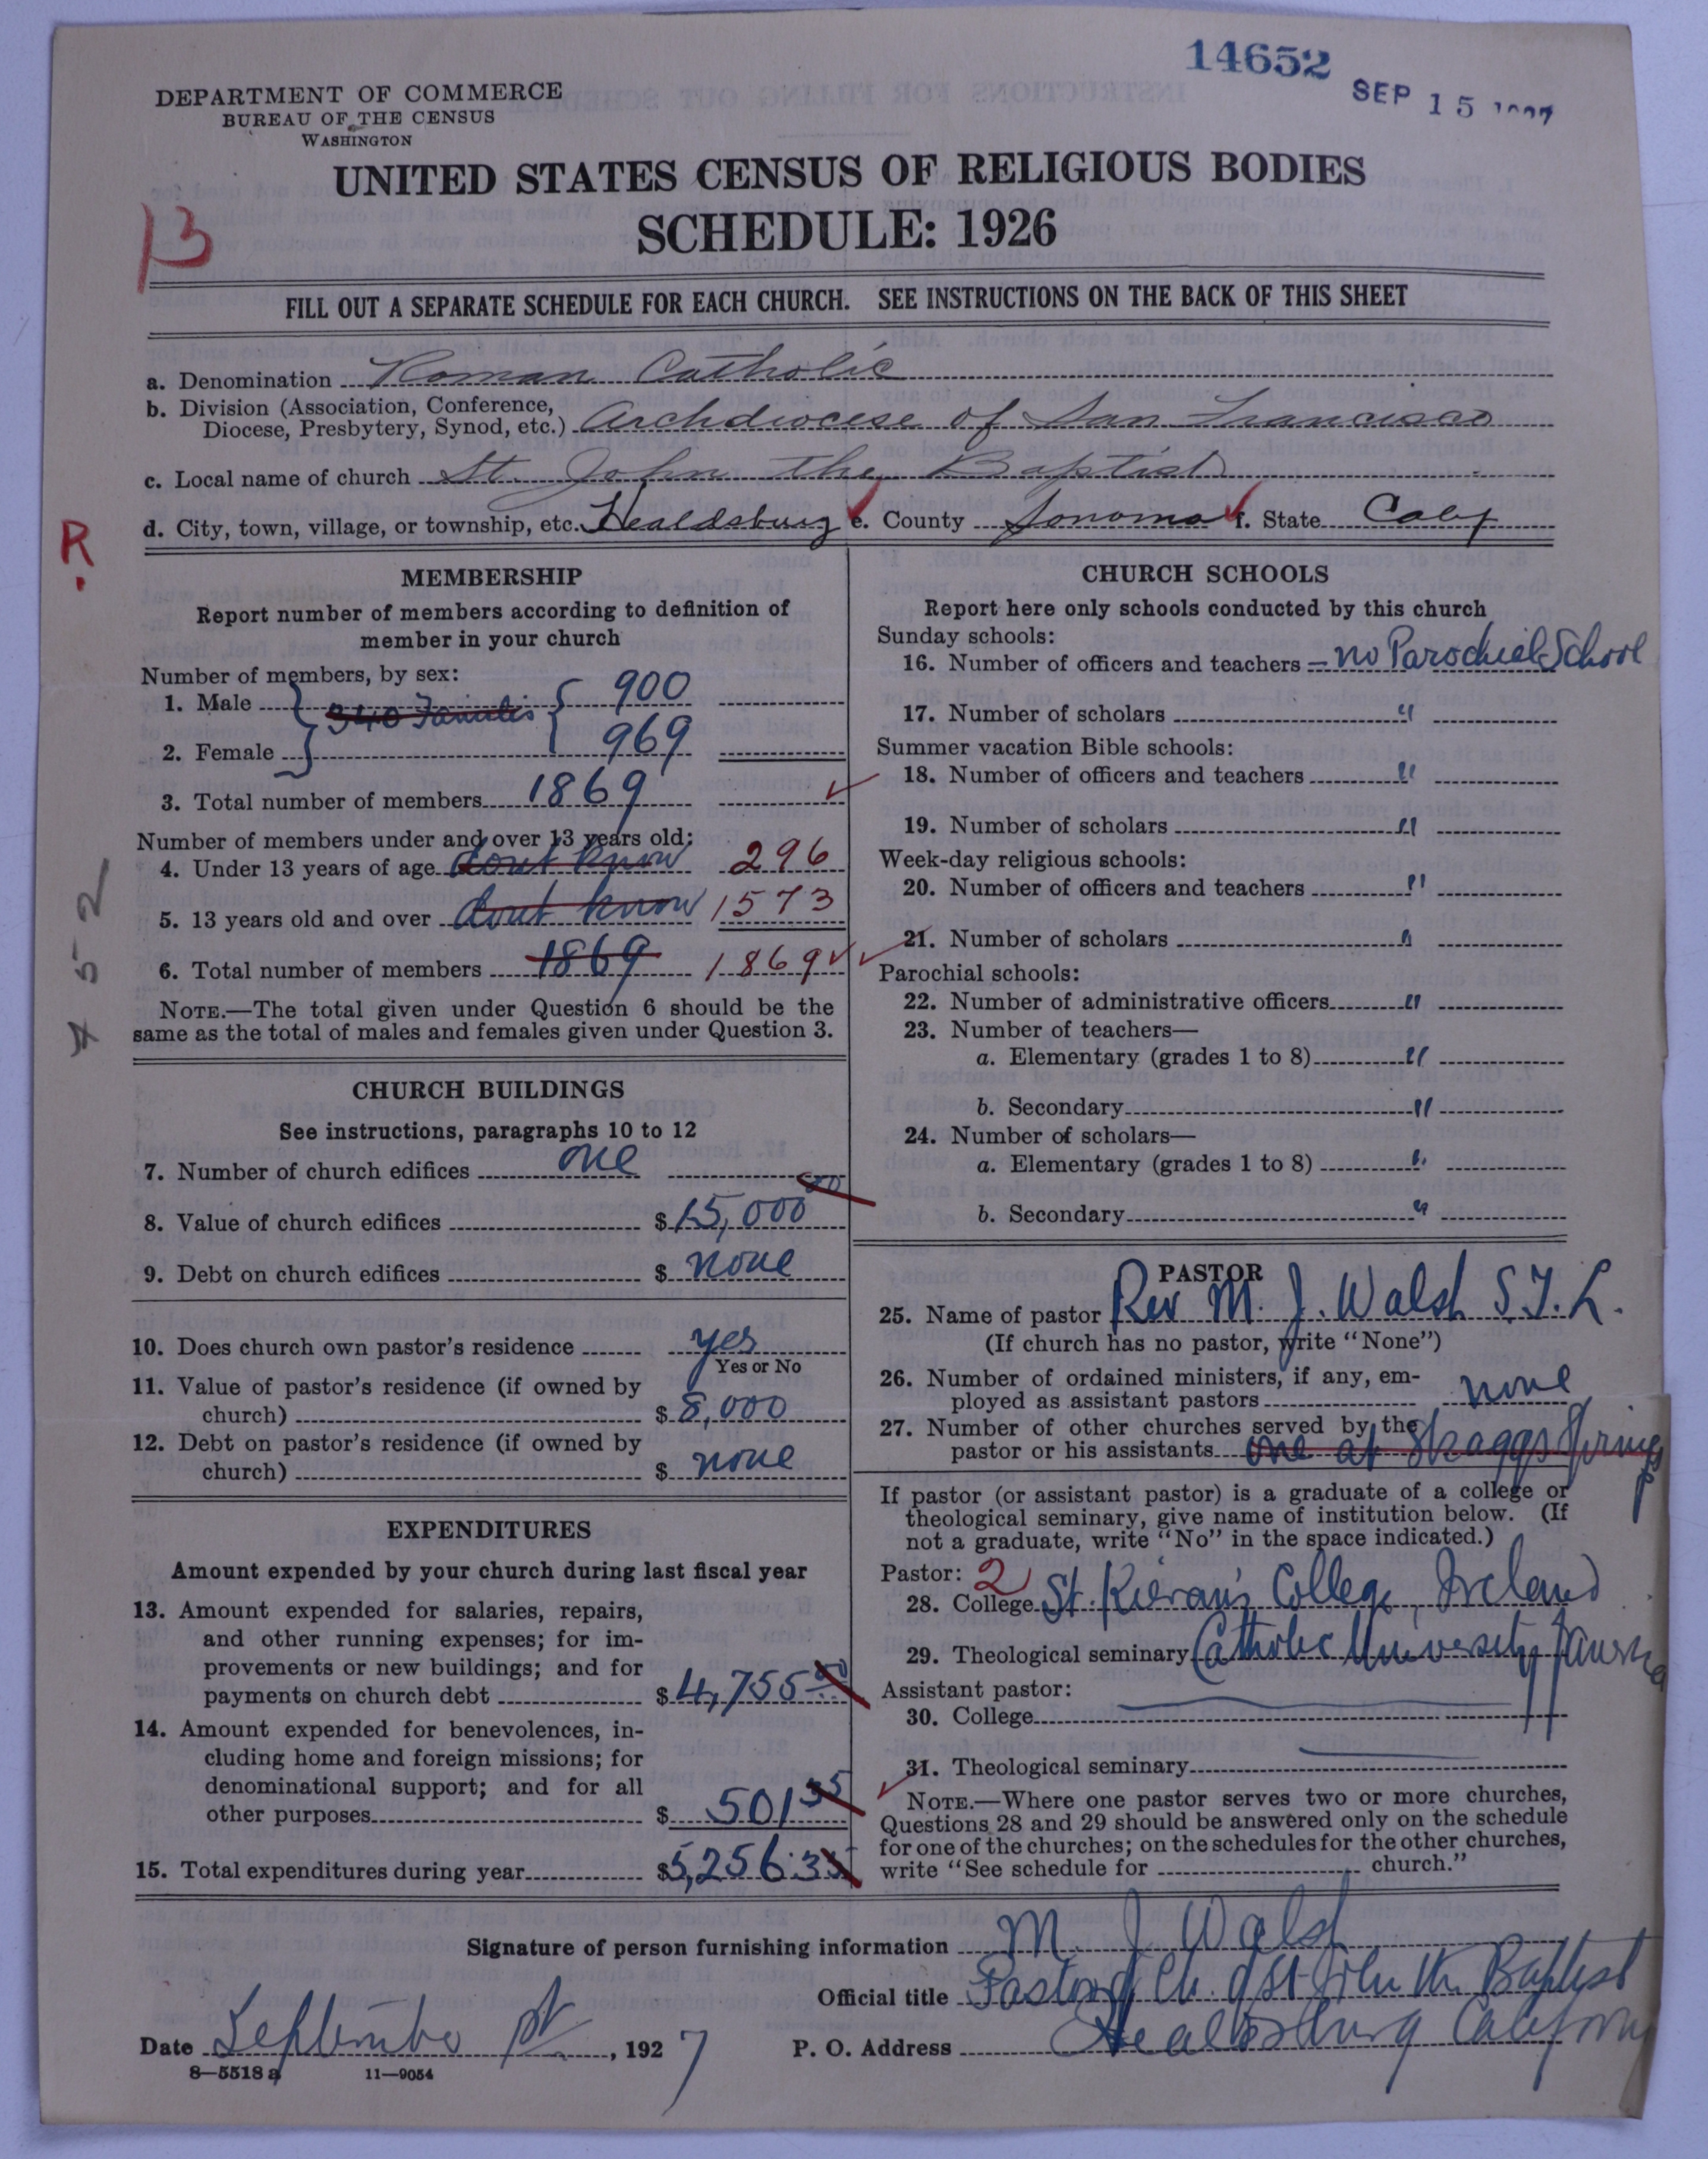 14652
SEP 15 1927
DEPARTMENT OF COMMERCE
BUREAU OF THE CENSUS
WASHINGTON
UNITED STATES CENSUS OF RELIGIOUS BODIES
SCHEDULE: 1926
13
FILL OUT A SEPARATE SCHEDULE FOR EACH CHURCH. SEE INSTRUCTIONS ON THE BACK OF THIS SHEET
a. Denomination Roman Catholic
b. Division (Association, Conference, Diocese, Presbytery, Synod, etc.) Archdiocese of San Francisco
c. Local name of church St. John the Baptist
d. City, town, village, or township, etc. Healdsburg e. County Sonoma f. State Calif
R.
7 5 2
MEMBERSHIP
Report number of members according to definition of
member in your church
Number of members, by sex:
1. Male 340 Families 900
2. Female 969
3. Total number of members 1869
Number of members under and over 13 years old:
4. Under 13 years of age dont know 296
5. 13 years old and over dont know 1573
6. Total number of members 1869 1869
NOTE.—The total given under Question 6 should be the
same as the total of males and females given under Question 3.
CHURCH BUILDINGS
See instructions, paragraphs 10 to 12
7. Number of church edifices one
8. Value of church edifices $ 15,000 00
9. Debt on church edifices $ none
10. Does church own pastor's residence yes
Yes or No
11. Value of pastor's residence (if owned by
church) $ 8,000
12. Debt on pastor's residence (if owned by
church) $ none
EXPENDITURES
Amount expended by your church during last fiscal year
13. Amount expended for salaries, repairs,
and other running expenses; for im-
provements or new buildings; and for
payments on church debt $ 4,755 00
14. Amount expended for benevolences, in-
cluding home and foreign missions; for
denominational support; and for all
other purposes $ 501 35
15. Total expenditures during year $ 5,256.35
CHURCH SCHOOLS
Report here only schools conducted by this church
Sunday schools:
16. Number of officers and teachers no Parochial School
17. Number of scholars "
Summer vacation Bible schools:
18. Number of officers and teachers "
19. Number of scholars "
Week-day religious schools:
20. Number of officers and teachers "
21. Number of scholars "
Parochial schools:
22. Number of administrative officers "
23. Number of teachers—
a. Elementary (grades 1 to 8) "
b. Secondary "
24. Number of scholars—
a. Elementary (grades 1 to 8) "
b. Secondary "
PASTOR
25. Name of pastor Rev M. J. Walsh S.T.L.
(If church has no pastor, write "None")
26. Number of ordained ministers, if any, em-
ployed as assistant pastors none
27. Number of other churches served by the
pastor or his assistants one at Skaggs Springs
If pastor (or assistant pastor) is a graduate of a college or
theological seminary, give name of institution below. (If
not a graduate, write "No" in the space indicated.)
Pastor: 2
28. College St. Kieran's College, Ireland
29. Theological seminary Catholic University
Assistant pastor:
30. College
31. Theological seminary
NOTE.—Where one pastor serves two or more churches,
Questions 28 and 29 should be answered only on the schedule
for one of the churches; on the schedules for the other churches,
write "See schedule for church."
Signature of person furnishing information M. J. Walsh
Official title Pastor of Ch. of St John the Baptist
Date September 1st, 1927 P. O. Address Healdsburg California
8—5518 a 11—9054